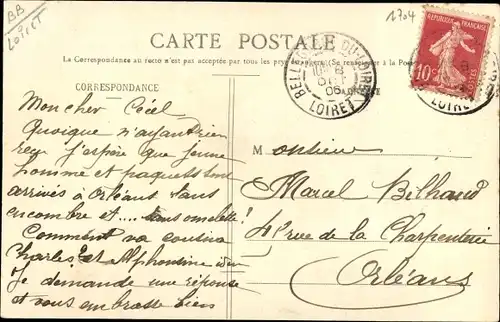 BB
LOIRET
1704
CARTE POSTALE
La Correspondance au recto n'est pas acceptée par tous les pays étrangers (Se renseigner à la Poste)
CORRESPONDANCE
BELLEGARDE-DU-LOIRET
06
LOIRET
REPUBLIQUE FRANÇAISE
10c
POSTES
Mon cher
Quoique n'ayant rien
reçu j'espère que jeune
homme et paquets sont
arrivés à Orléans sans
encombre et.... sans omelette!
Comment va cousin
Charles et Alphonsine
Je demande une réponse
et vous embrasse bien
Monsieur
Marcel
rue de la Charpenterie
Orléans